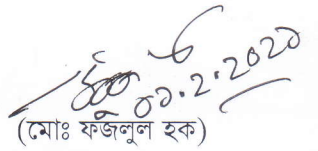 ০১.২.২০২১
(মোঃ ফজলুল হক)